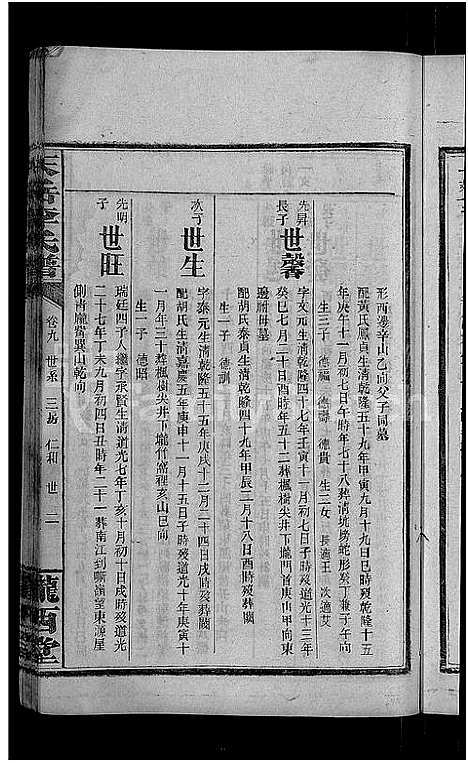 形西邊辛山乙向父子同墓
配黃氏鳳貞生清乾隆五十九年甲寅九月十九日巳時歿乾隆十五
年庚子十一月初七日午時年七十八葬清坑塝蛇形癸丁兼子午向
生三子 德福 德壽 德貴 生三女 長適王 次適艾
先昇
長子
世馨
字文元生清乾隆四十七年壬寅十一月初七日子時歿道光十三年
癸巳七月二十日酉時年五十二葬楓樹尖井下壠門首庚山甲向東
邊祔母墓
配胡氏泰貞生清乾隆四十九年甲辰二月十八日酉時歿葬闕
生一子 德訓
次子
世生
字泰元生清乾隆五十五年庚戌十二月二十四日戌時歿葬闕
配胡氏生清嘉慶五年庚申十一月十五日子時歿道光十年庚寅十
一月年三十葬楓樹尖井下壠竹窩裡亥山巳向
生一子 德昭
先明
子
世旺
瑞廷四子入繼字永賢生清道光七年丁亥十月初十日戌時歿道光
二十七年丁未九月初四日丑時年二十一葬南江到嘶嶺望東源屋
側青龍嘴巽山乾向
氏譜
卷九 世系 三房 仁和 世 二
隴西堂